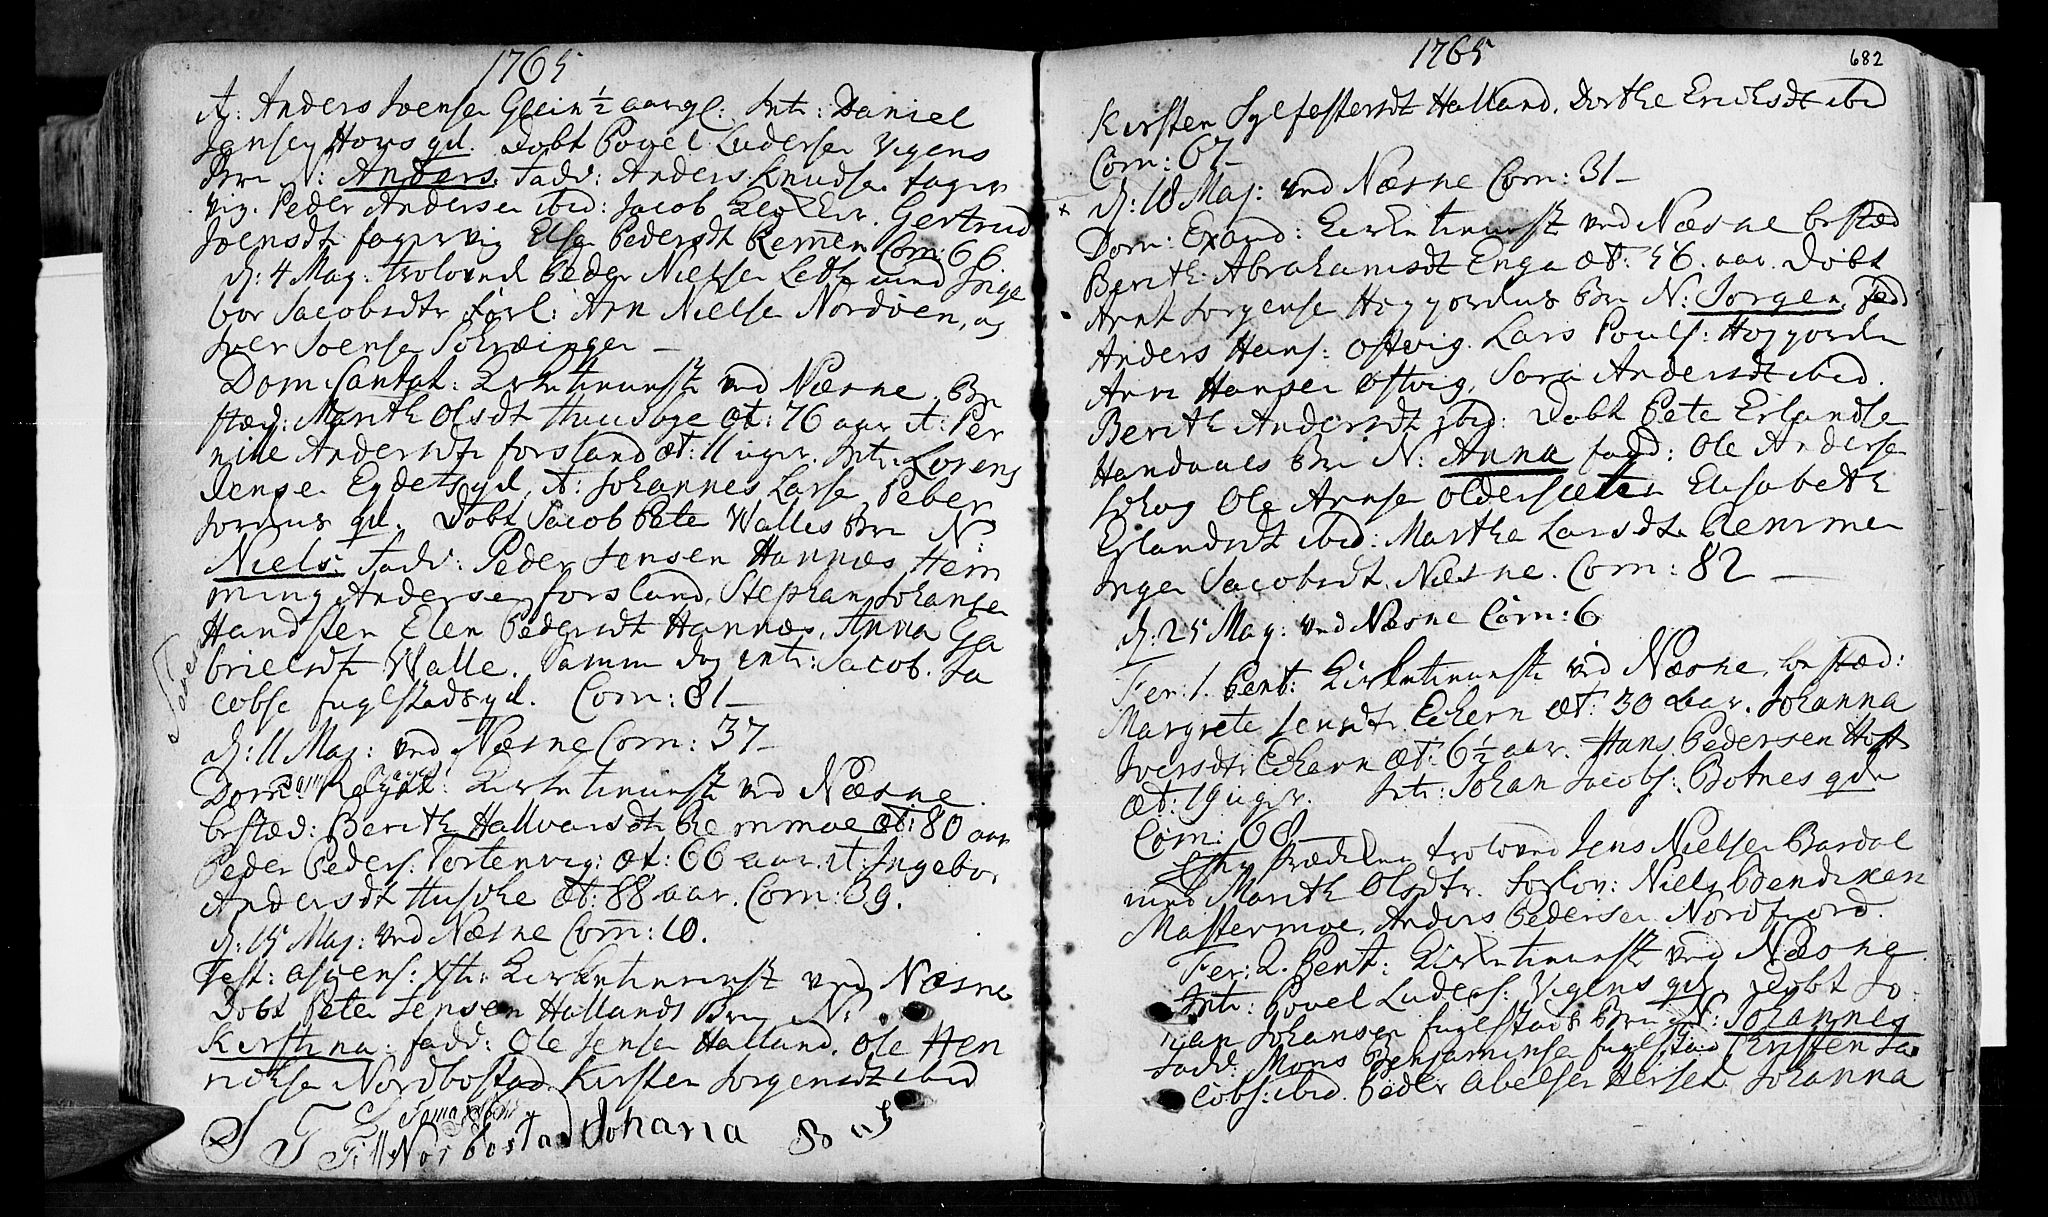 1765
It: Anders Joensen Glein 1/2 aar gl: Intr: Daniel
Jensen Hovs qd. Døbt Povel Ludersen Vigens
Brn N: Anders. fadd: Anders Knudsen fager
vig. Peder Andersen ibid: Jacob Gertrud
Joensdt fagervig Else Pedersdt Remmen Com: 66
d: 4 Maj: trolovred Peder Nielsen med Inge
bor Jacobsdtr forl: Arn Nielsen Nordøen, og
Iver Joensen
Dom: Cantat: Kirketienniste ved Næsne. Be
stæd: Marith Olsdt æt: 76 aar it: Per
nille Andersdt forsland æt: 11 uger. Intr: Lorens
Jensen qd. It: Johannes Larsen Peber
Jordens qd. Døbt Jacob Peter Walles Brn N:
Niels. fadd: Peder Jensen Hannæs Hem
ming Andersen forsland, Stephan Johansen
Handsten Elen Pedersdt Hannæs, Anna Ga
brielsdt Walle. Samme dag intr: Jacob Ja
cobsen fuglstads qd. Com: 81
d: 11 Maj: ved Næsne Com: 37
Dom: Rogate: Kirketienniste ved Næsne.
bestæd: Berith Hallvarsdt Remmoe æt: 80 aar
Peder Peders: Tortenvig: æt: 66 aar. it: Ingebor
Andersdt Husbye æt: 88 aar. Com: 39.
d: 15 Maj: ved Næsne Com: 10.
Fest: ascens: Xsti: Kirketienniste ved Næsne
Døbt Peter Jensen Hallands Brn N:
Kirstina: fadd: Ole Jensen Halland, Ole Hen
richsen Nordbostad Kirsten Jorgensdt ibid
S T Till Norbostad Johana
1765
682
Kirsten Sylfestersdt Halland. Dorthe Erichsdt ibid
Com: 67
d: 18 Maj: ved Næsne Com: 31
Dom: Exaud: Kirketienniste ved Næsne bestæd
Berith Abrahamsdt Enga æt: 46. aar. Døbt
Arnt Jorgensen Hogjordens Brn N: Jorgen, fadd
Anders Hans: Ostvig. Lars Pouls: Hogjorden
Arn Hansen Ostvig, Sara Andersdt ibid.
Berith Andersdt ibid: Døbt Peter Erlandsen
Handaaes Brn N: Anna fadd: Ole Andersen
Ole Arnsen Oldersætter Elisabeth
Erlandsdt ibid: Marthe Larsdt Remmen
Inger Jacobsdt Næsne. Com: 82
d: 25 Maj: ved Næsne Com: 6
Fer: 1. Pent: Kirketienniste ved Næsne, bestæd:
Margrete Jensdtr Echern æt: 30 aar. Johanna
Iversdtr Echern æt: 6 1/2 aar. Hans Pedersen
æt: 19 uger. Intr: Johan Jacobs: Botnes qde
Com: 68
trolovred Jens Nielsen Bardal
med Marith Olsdtr. forlov: Niels Bendixen
Mastermoe, Anders Pedersen Nordfjord.
Fer: 2. Pent: Kirketienniste ved Næsne.
Intr: Povel Luders: Vigens qd. Døbt Jo
han Johansen fuglstads Brn N: Johannes
fadd: Mons Benjaminsen fuglstad Christen Ja
cobs: ibid. Peder Abelsen Hersen Johanna